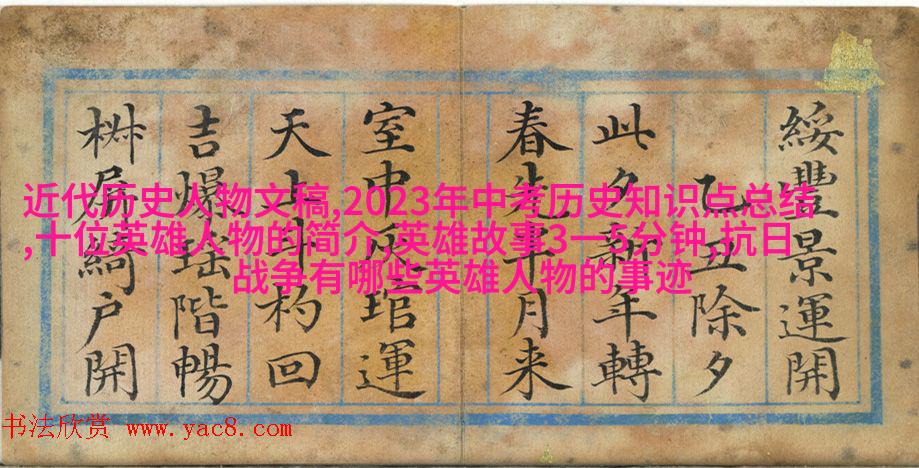 綏豐景運開
乙丑除夕
此夕新年轉
春先半月来
室中灰琯運
天上斗杓回
吉爆瑶階暢
椒屏綺户開
近代历史人物文稿,2023年中考历史知识点总结
,十位英雄人物的简介,英雄故事3一5分钟,抗日
战争有哪些英雄人物的事迹
书法欣赏 www.yac8.com